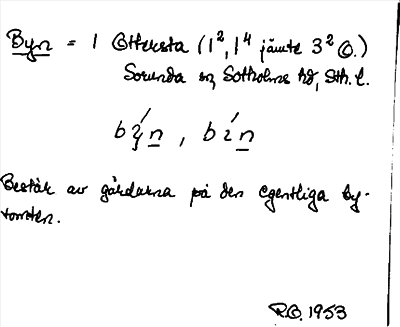 Byn = 1 Otteksta (1², 1⁴ jämte 3² O.)
Sorunda sn, Sotholms hd, Sth. l.
Består av gårdarna på den egentliga by-
tomten.
R.O. 1953